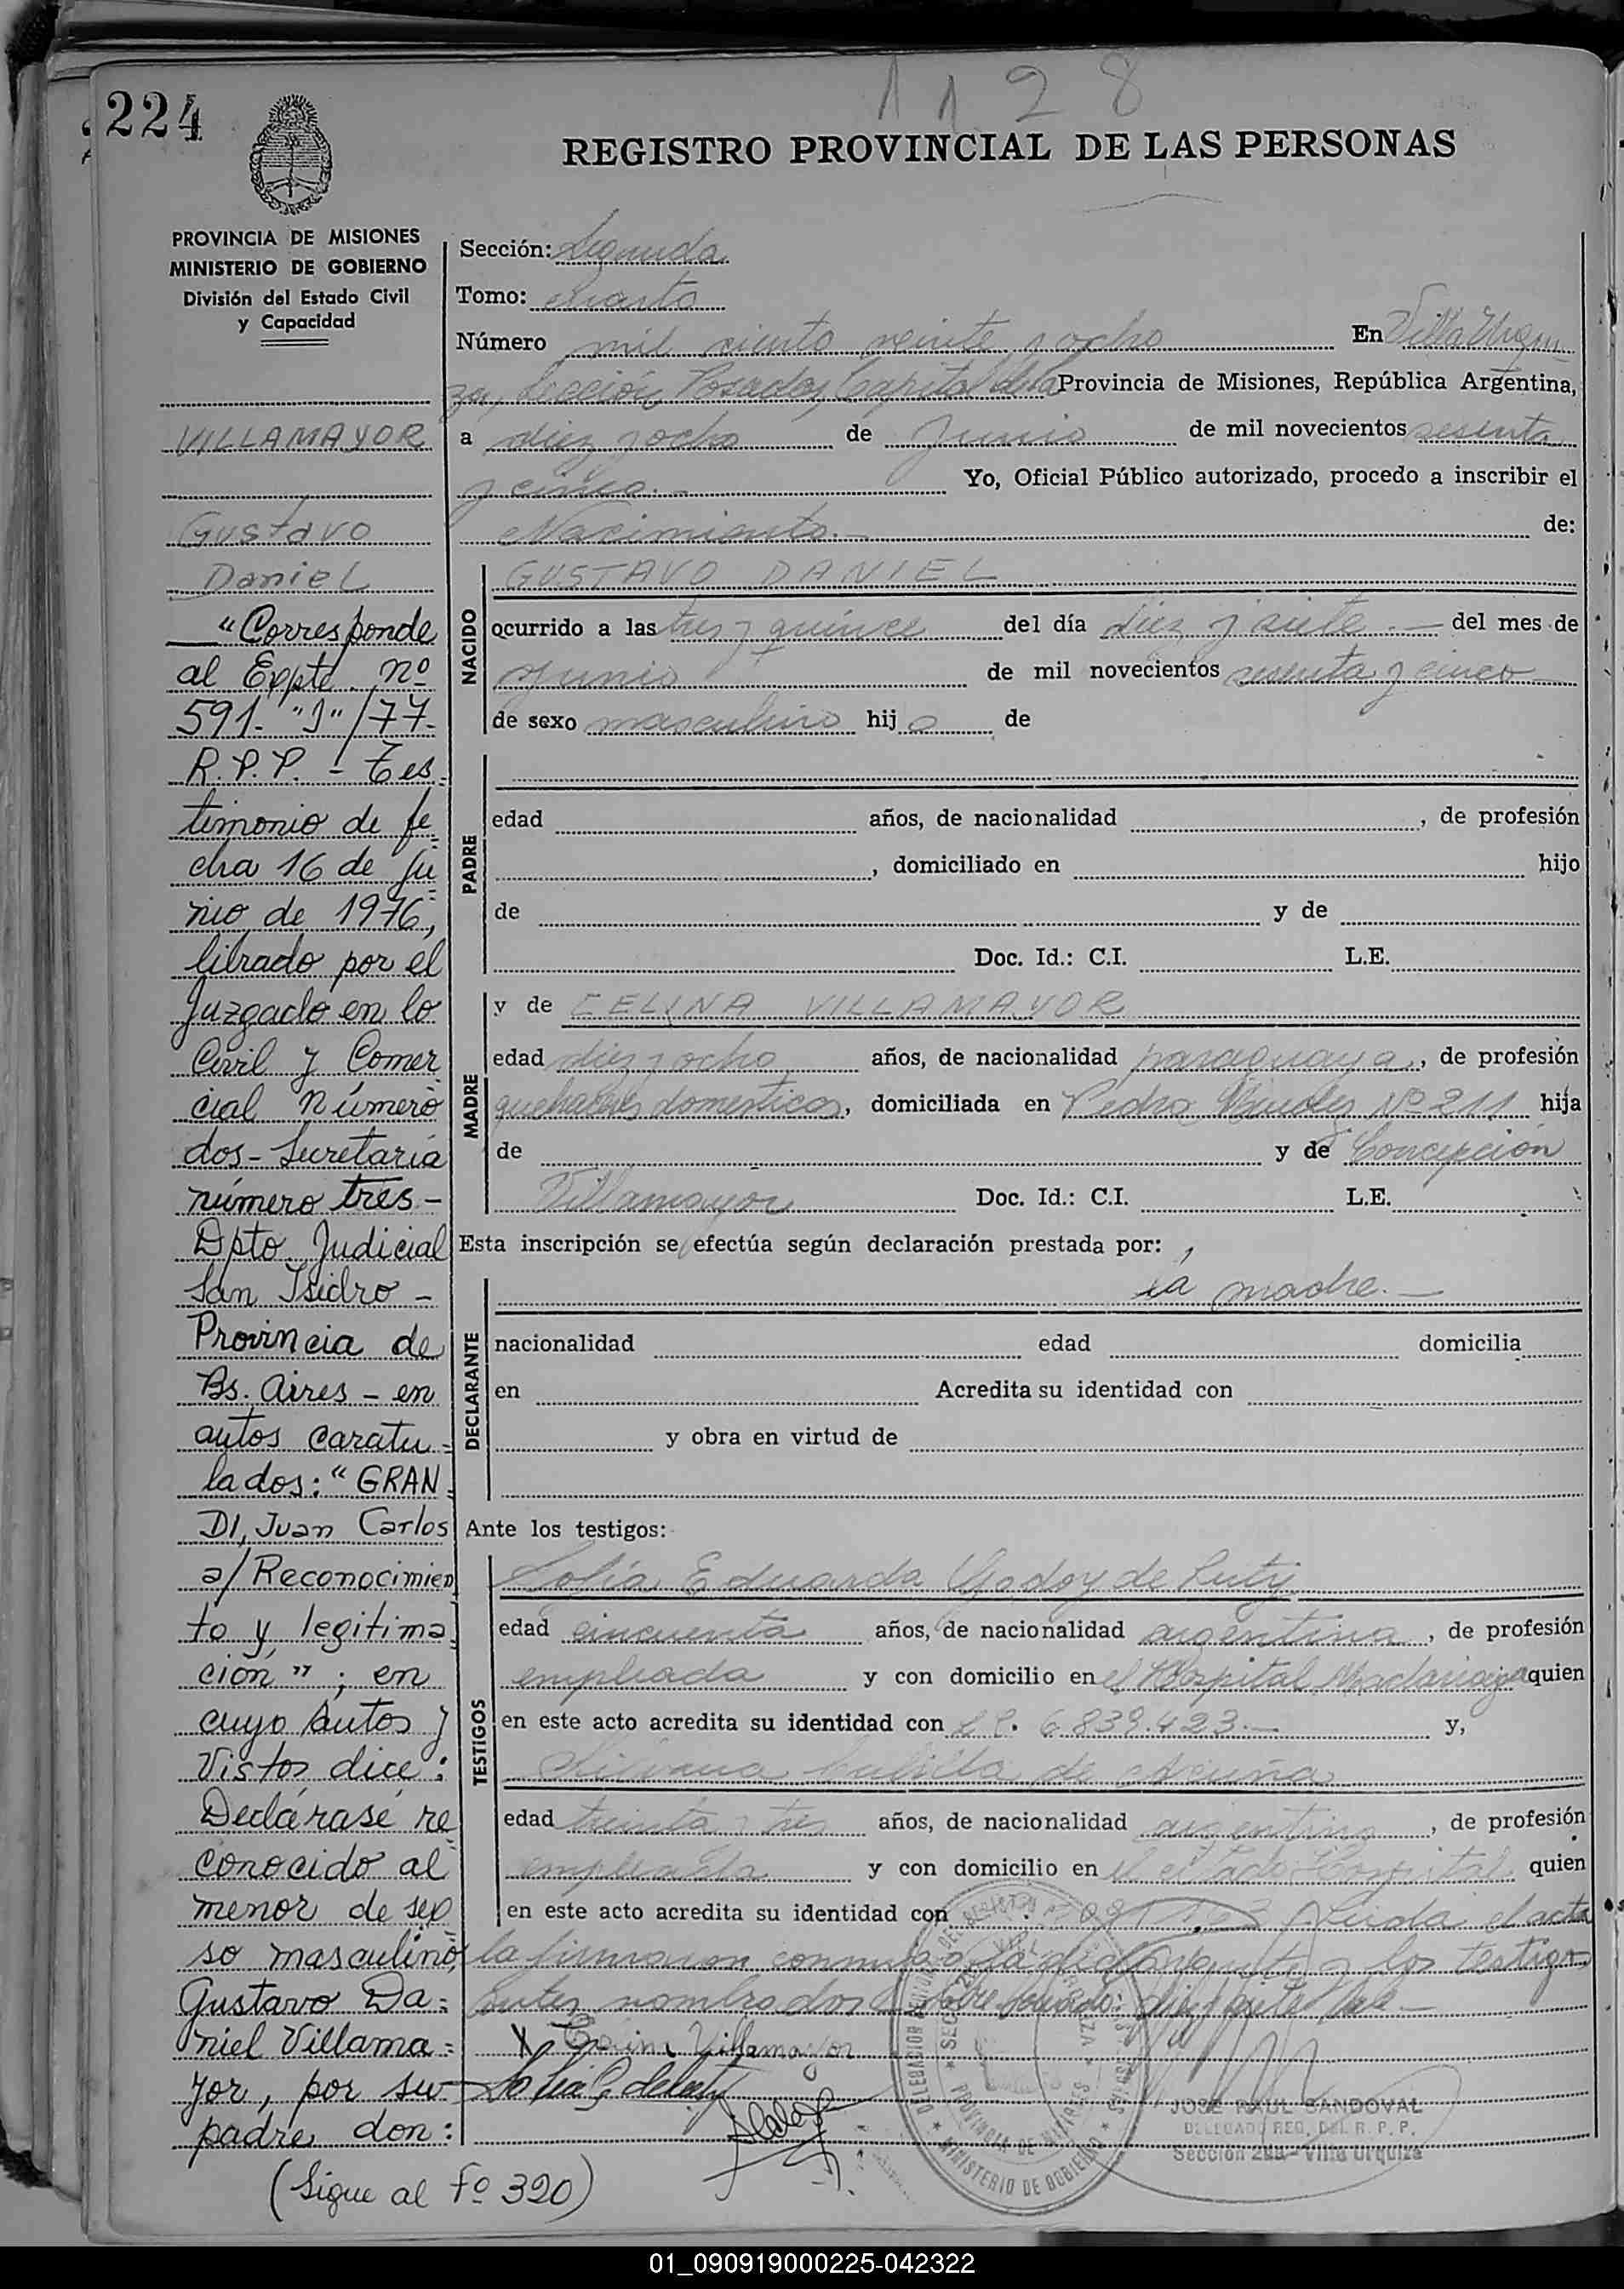 1128
224
REGISTRO PROVINCIAL DE LAS PERSONAS
PROVINCIA DE MISIONES
MINISTERIO DE GOBIERNO
División del Estado Civil
y Capacidad
VILLAMAYOR
Gustavo
Daniel
"Corresponde
al Expte. nº
591- "J"/77-
R.P.P. - Tes
timonio de fe
cha 16 de Ju
nio de 1976,
librado por el
Juzgado en lo
Civil y Comer
cial número
dos - Secretaria
número tres -
Dpto. Judicial
San Isidro -
Provincia de
Bs. Aires - en
autos caratu=
lados: "GRAN=
DI, Juan Carlos
a/Reconocimien
to y legitima
ción"; en
cuyo Autos y
Vistos dice:
Declárase re
conocido al
menor de sex
so masculino,
Gustavo Da=
niel Villama=
yor, por su
padre don:
(Sigue al Fº 320)
Sección: Segunda
Tomo: Cuarto
Número mil ciento veinte y ocho En Villa Urqui
za, Sección Posadas, Capital de la Provincia de Misiones, República Argentina,
a diez y ocho de Junio de mil novecientos sesenta
y cinco.- Yo, Oficial Público autorizado, procedo a inscribir el
Nacimiento.- de:
NACIDO
GUSTAVO DANIEL
ocurrido a las tres y quince del día diez y siete.- del mes de
Junio de mil novecientos sesenta y cinco
de sexo masculino hijo de
PADRE
edad años, de nacionalidad , de profesión
, domiciliado en hijo
de y de
Doc. Id.: C.I. L.E.
MADRE
y de CELINA VILLAMAYOR
edad diez y ocho años, de nacionalidad paraguaya, de profesión
quehaceres domesticos, domiciliada en Pedro Mendez Nº 211 hija
de y de Concepción
Villamayor Doc. Id.: C.I. L.E.
Esta inscripción se efectúa según declaración prestada por:
DECLARANTE
la madre.-
nacionalidad edad domicilia
en Acredita su identidad con
y obra en virtud de
Ante los testigos:
TESTIGOS
Sofía Eduarda Godoy de
edad cincuenta años, de nacionalidad argentina, de profesión
empleada y con domicilio en el Hospital Madariaga quien
en este acto acredita su identidad con L.C. 6.839.423.- y,
de Acuña
edad treinta y tres años, de nacionalidad argentina, de profesión
empleada y con domicilio en el citado Hospital quien
en este acto acredita su identidad con Leida el acta
la firmaron conmigo la declarante y los testigos
antes nombrados Vale-
Villamayor
JOSE RAUL SANDOVAL
DELEGADO REG. DEL R. P. P.
Sección 2da - Villa Urquiza
MINISTERIO DE GOBIERNO
01_090919000225-042322